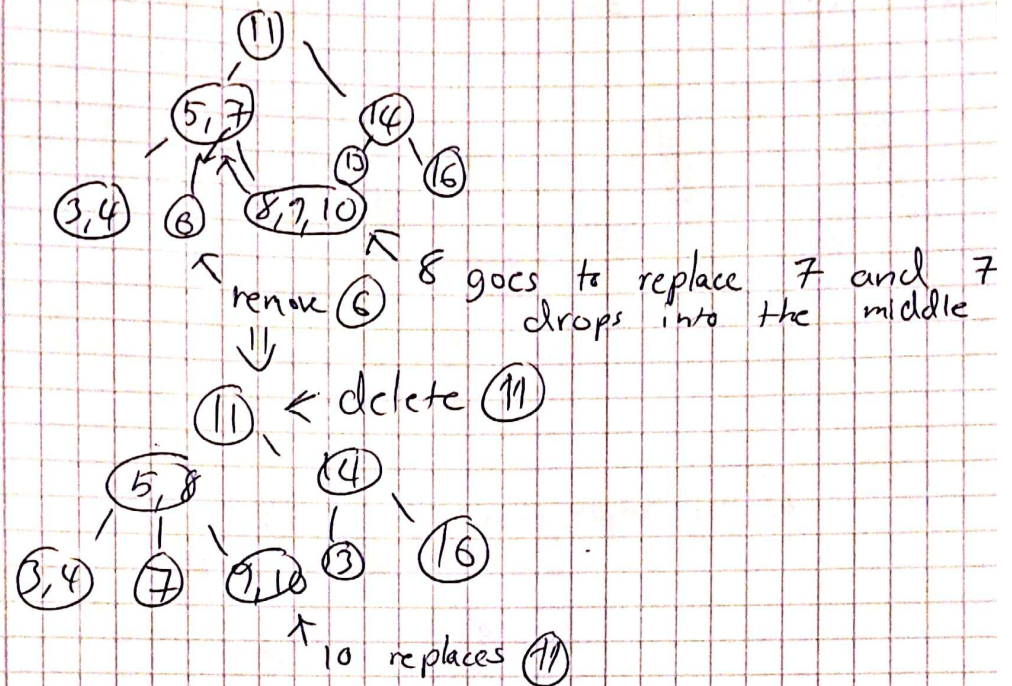 11
5, 7 14
13 16
3, 4 6 8, 9, 10
8 goes to replace 7 and 7
remove 6 drops into the middle
11 < delete 11
5, 8 14
3, 4 7 9, 10 13 16
10 replaces 11